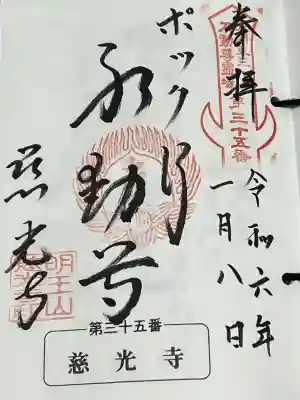 奉拝
三十五番
令和六年
一月八日
ポックリ
不動尊
慈光寺
明王山
第三十五番
慈光寺